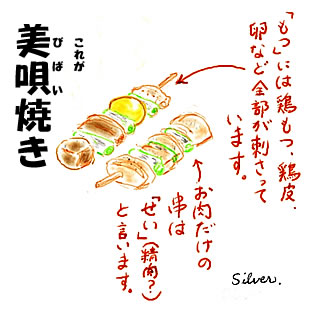 これが
美唄焼き
びばい
「もつ」には鶏もつ、鶏皮、
卵など全部が刺さって
います。
お肉だけの
串は
「せい」(精肉?)
と言います。
Silver.